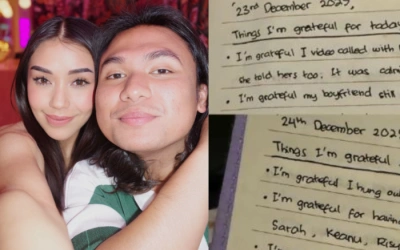 "23rd December 2025,
Things I'm grateful for today
• I'm grateful I video called with
she told hers too. It was
• I'm grateful my boyfriend still
24th December 202
Things I'm grateful
• I'm grateful I hung ou
• I'm grateful for
Sarah, Keanu,
• I'm